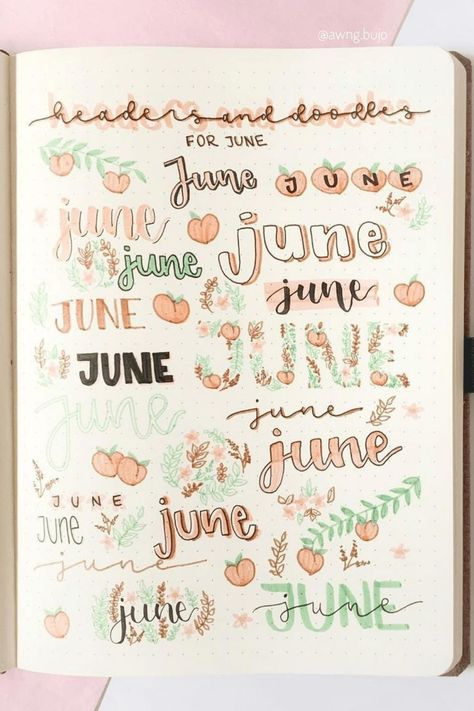 @awng.bujo
headers and doodles
FOR JUNE
June JUNE
june june
june
june
JUNE
JUNE
JUNE
june
june
june
JUNE
june
June
june
june
JUNE
june